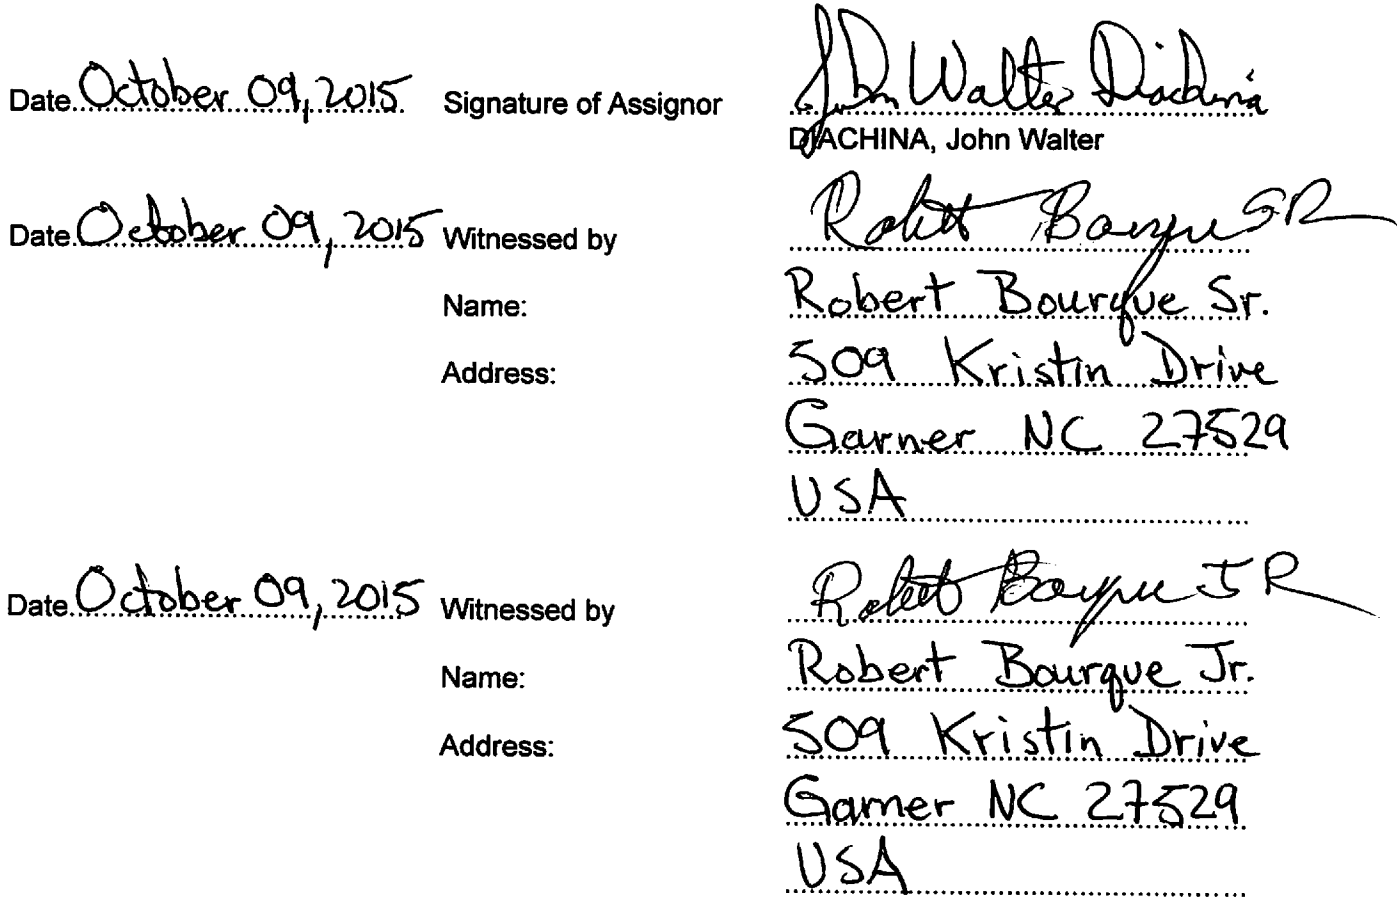 Date October 09, 2015 Signature of Assignor John Walter Diachina
DIACHINA, John Walter
Date October 09, 2015 Witnessed by Robert Bourque SR
Name: Robert Bourque Sr.
Address: 509 Kristin Drive
Garner NC 27529
USA
Date October 09, 2015 Witnessed by Robert Bourque JR
Name: Robert Bourque Jr.
Address: 509 Kristin Drive
Garner NC 27529
USA